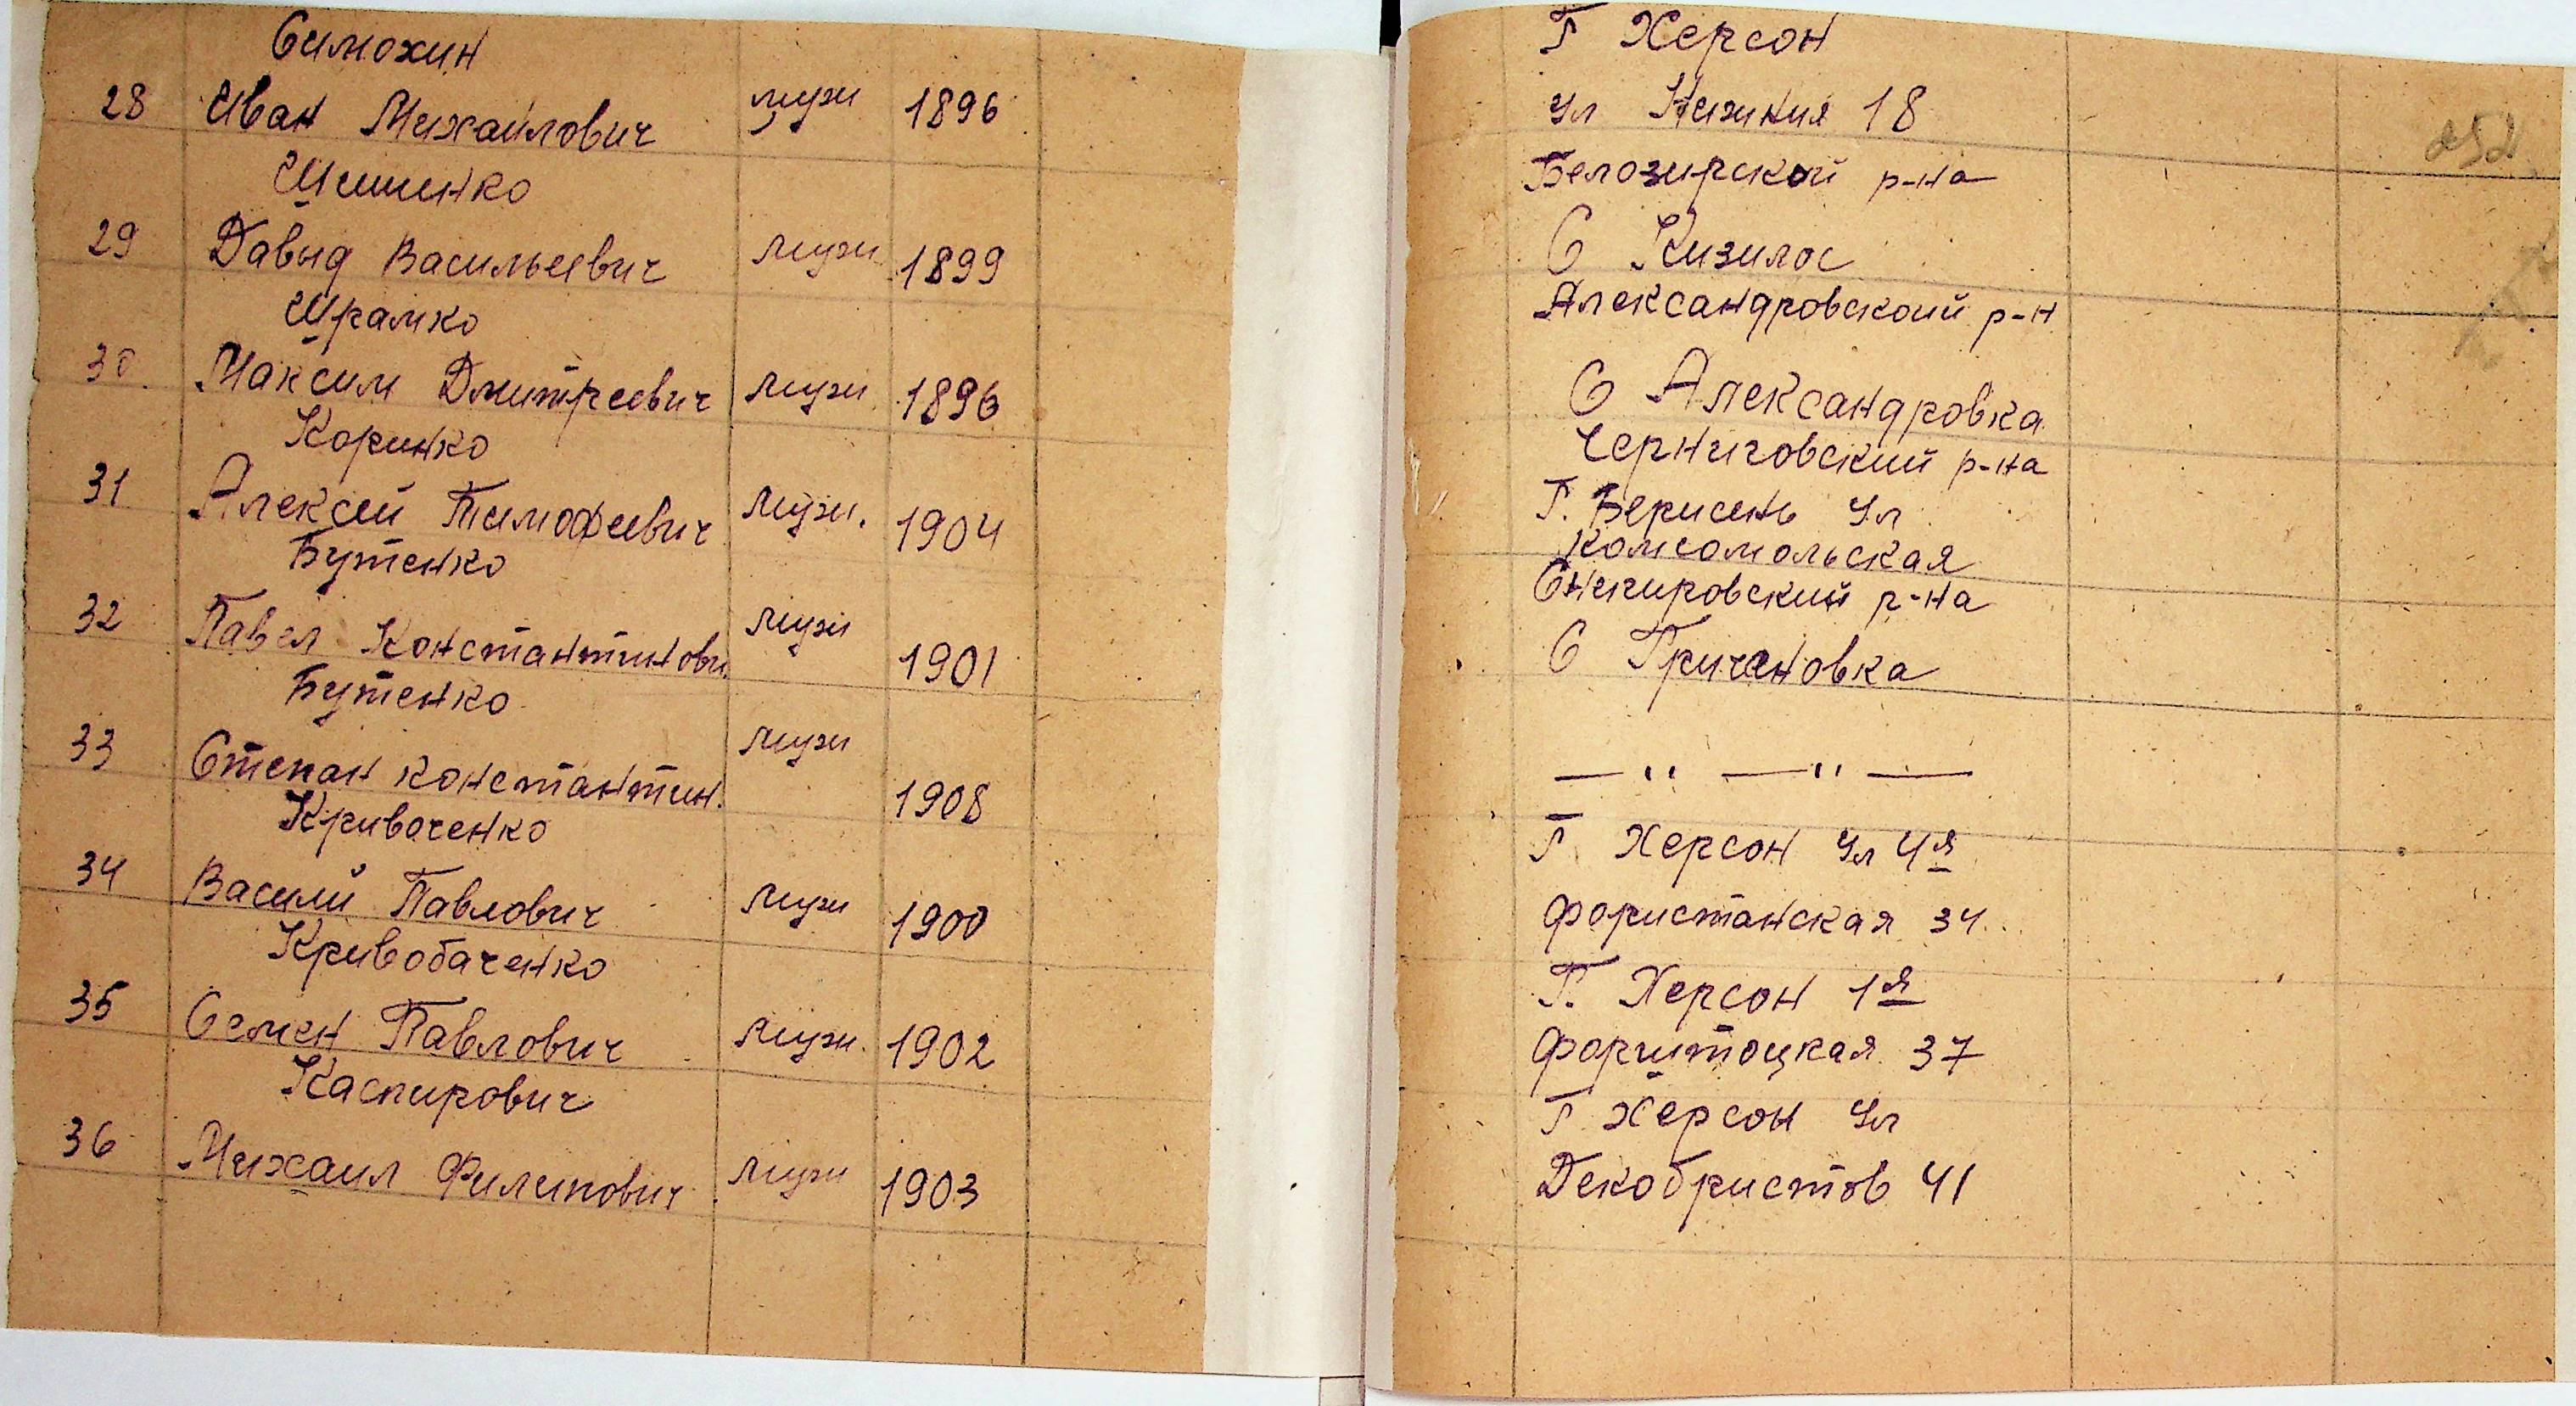 Симохин
28 Иван Михайлович муж 1896
Шишенко
29 Давыд Васильевич муж 1899
Шрамко
30 Максим Дмитреевич муж 1896
Коринко
31 Алексей Тимофеевич муж. 1904
Бутенко
32 Павел Константинови. муж 1901
Бутенко
33 Степан констант​ин. муж 1908
Кривоченко
34 Васили​й Павлович муж 1900
Кривобаченко
35 Семен Павлович муж. 1902
Каспирович
36 Михаил Филипович муж 1903
Г Херсон
Ул Нижния 18
Белозирской р-на
С Кизилос
Александровской р-н
С Александровка
Черниговский р-на
Г. Берислнь Ул
Комсомольская
Снегировский р-на
С Гричановка
— '' — '' —
Г. Херсон Ул 4я
Фориштанская 34
Г. Херсон 1я
Форштоцкая 37
Г Херсон Ул
Декобристов 41
252